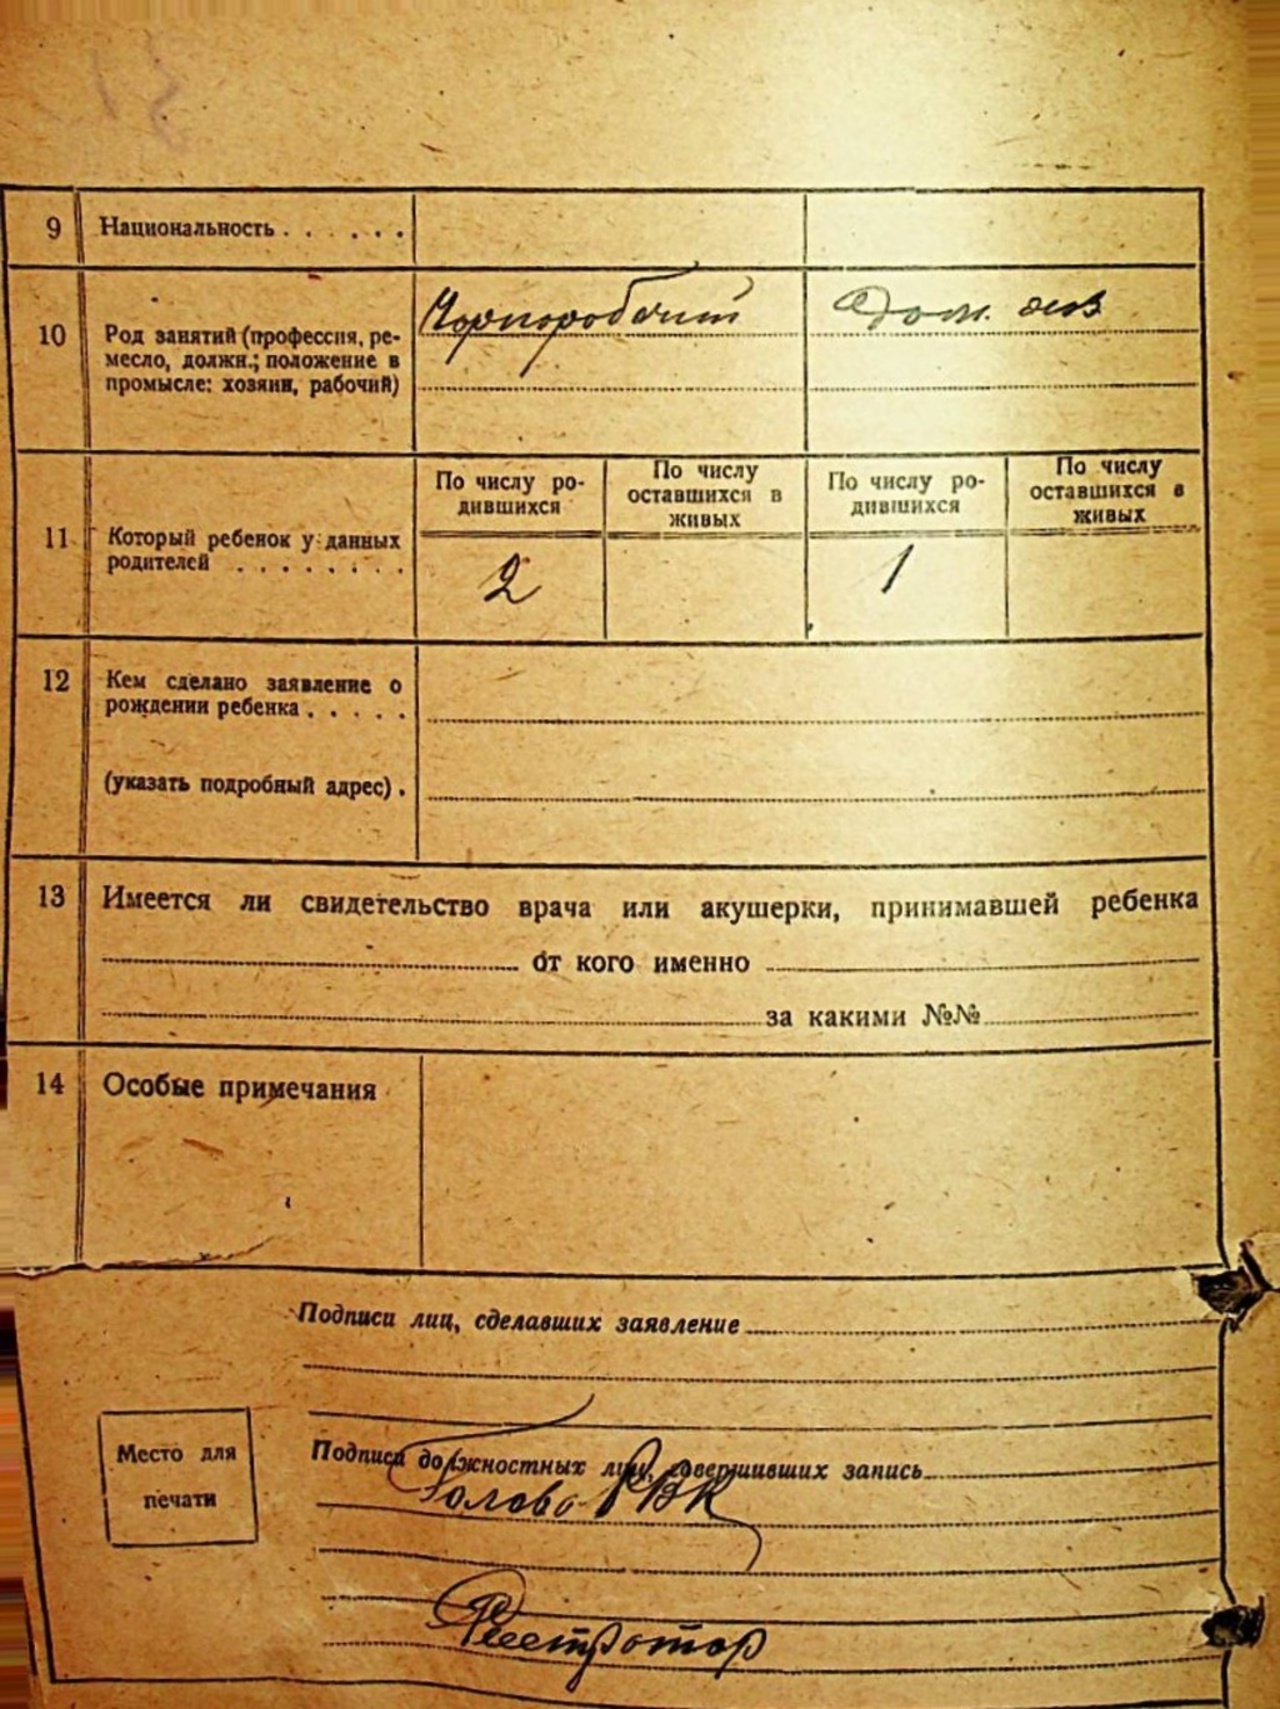 9 Национальность . . . . . .
10 Род занятий (профессия, ре-
месло, должн.; положение в
промысле: хозяин, рабочий)
Чорноробочий
Дом. хоз
11 Который ребенок у данных
родителей . . . . . . . .
По числу ро-
дившихся
По числу
оставшихся в
живых
По числу ро-
дившихся
По числу
оставшихся в
живых
2
1
12 Кем сделано заявление о
рождении ребенка . . . . .
(указать подробный адрес) .
13 Имеется ли свидетельство врача или акушерки, принимавшей ребенка
от кого именно
за какими №№
14 Особые примечания
Подписи лиц, сделавших заявление
Место для
печати
Подписи должностных лиц, совершивших запись
Голова РВК
Реєстратор